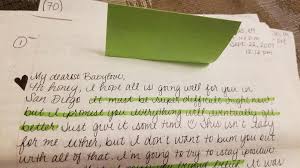 (70)
Sept. 22, 2009
1
My dearest Babylove,
Hi honey, I hope all is going well for you in
San Diego. It must be super difficult right now
but I promise you everything will eventually get
better. Just give it some time ☺ This isn't easy
for me either, but I don't want to bum you out
with all of that. I'm going to try to stay positive
It was